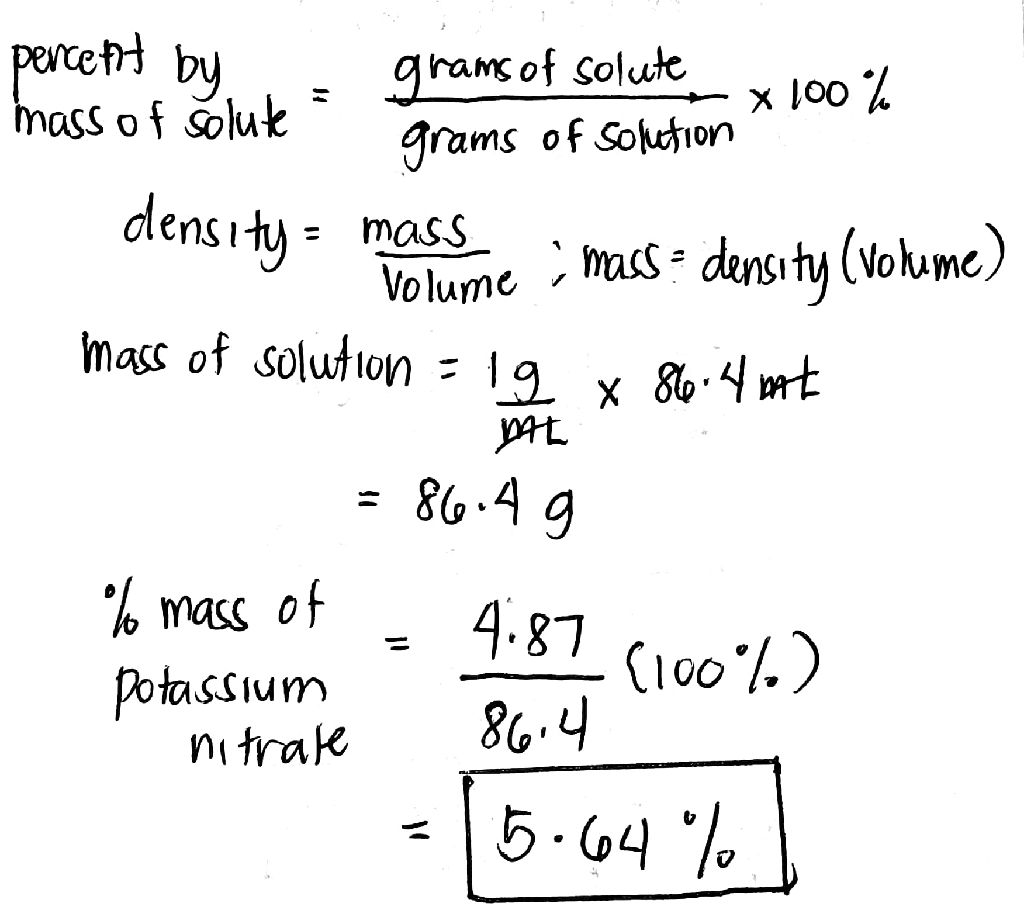 percent by
mass of solute = grams of solute / grams of solution x 100 %
density = mass / Volume ; mass = density (volume)
mass of solution = 1 g / mL x 86.4 mL
= 86.4 g
% mass of
potassium
nitrate = 4.87 / 86.4 (100%)
= 5.64 %